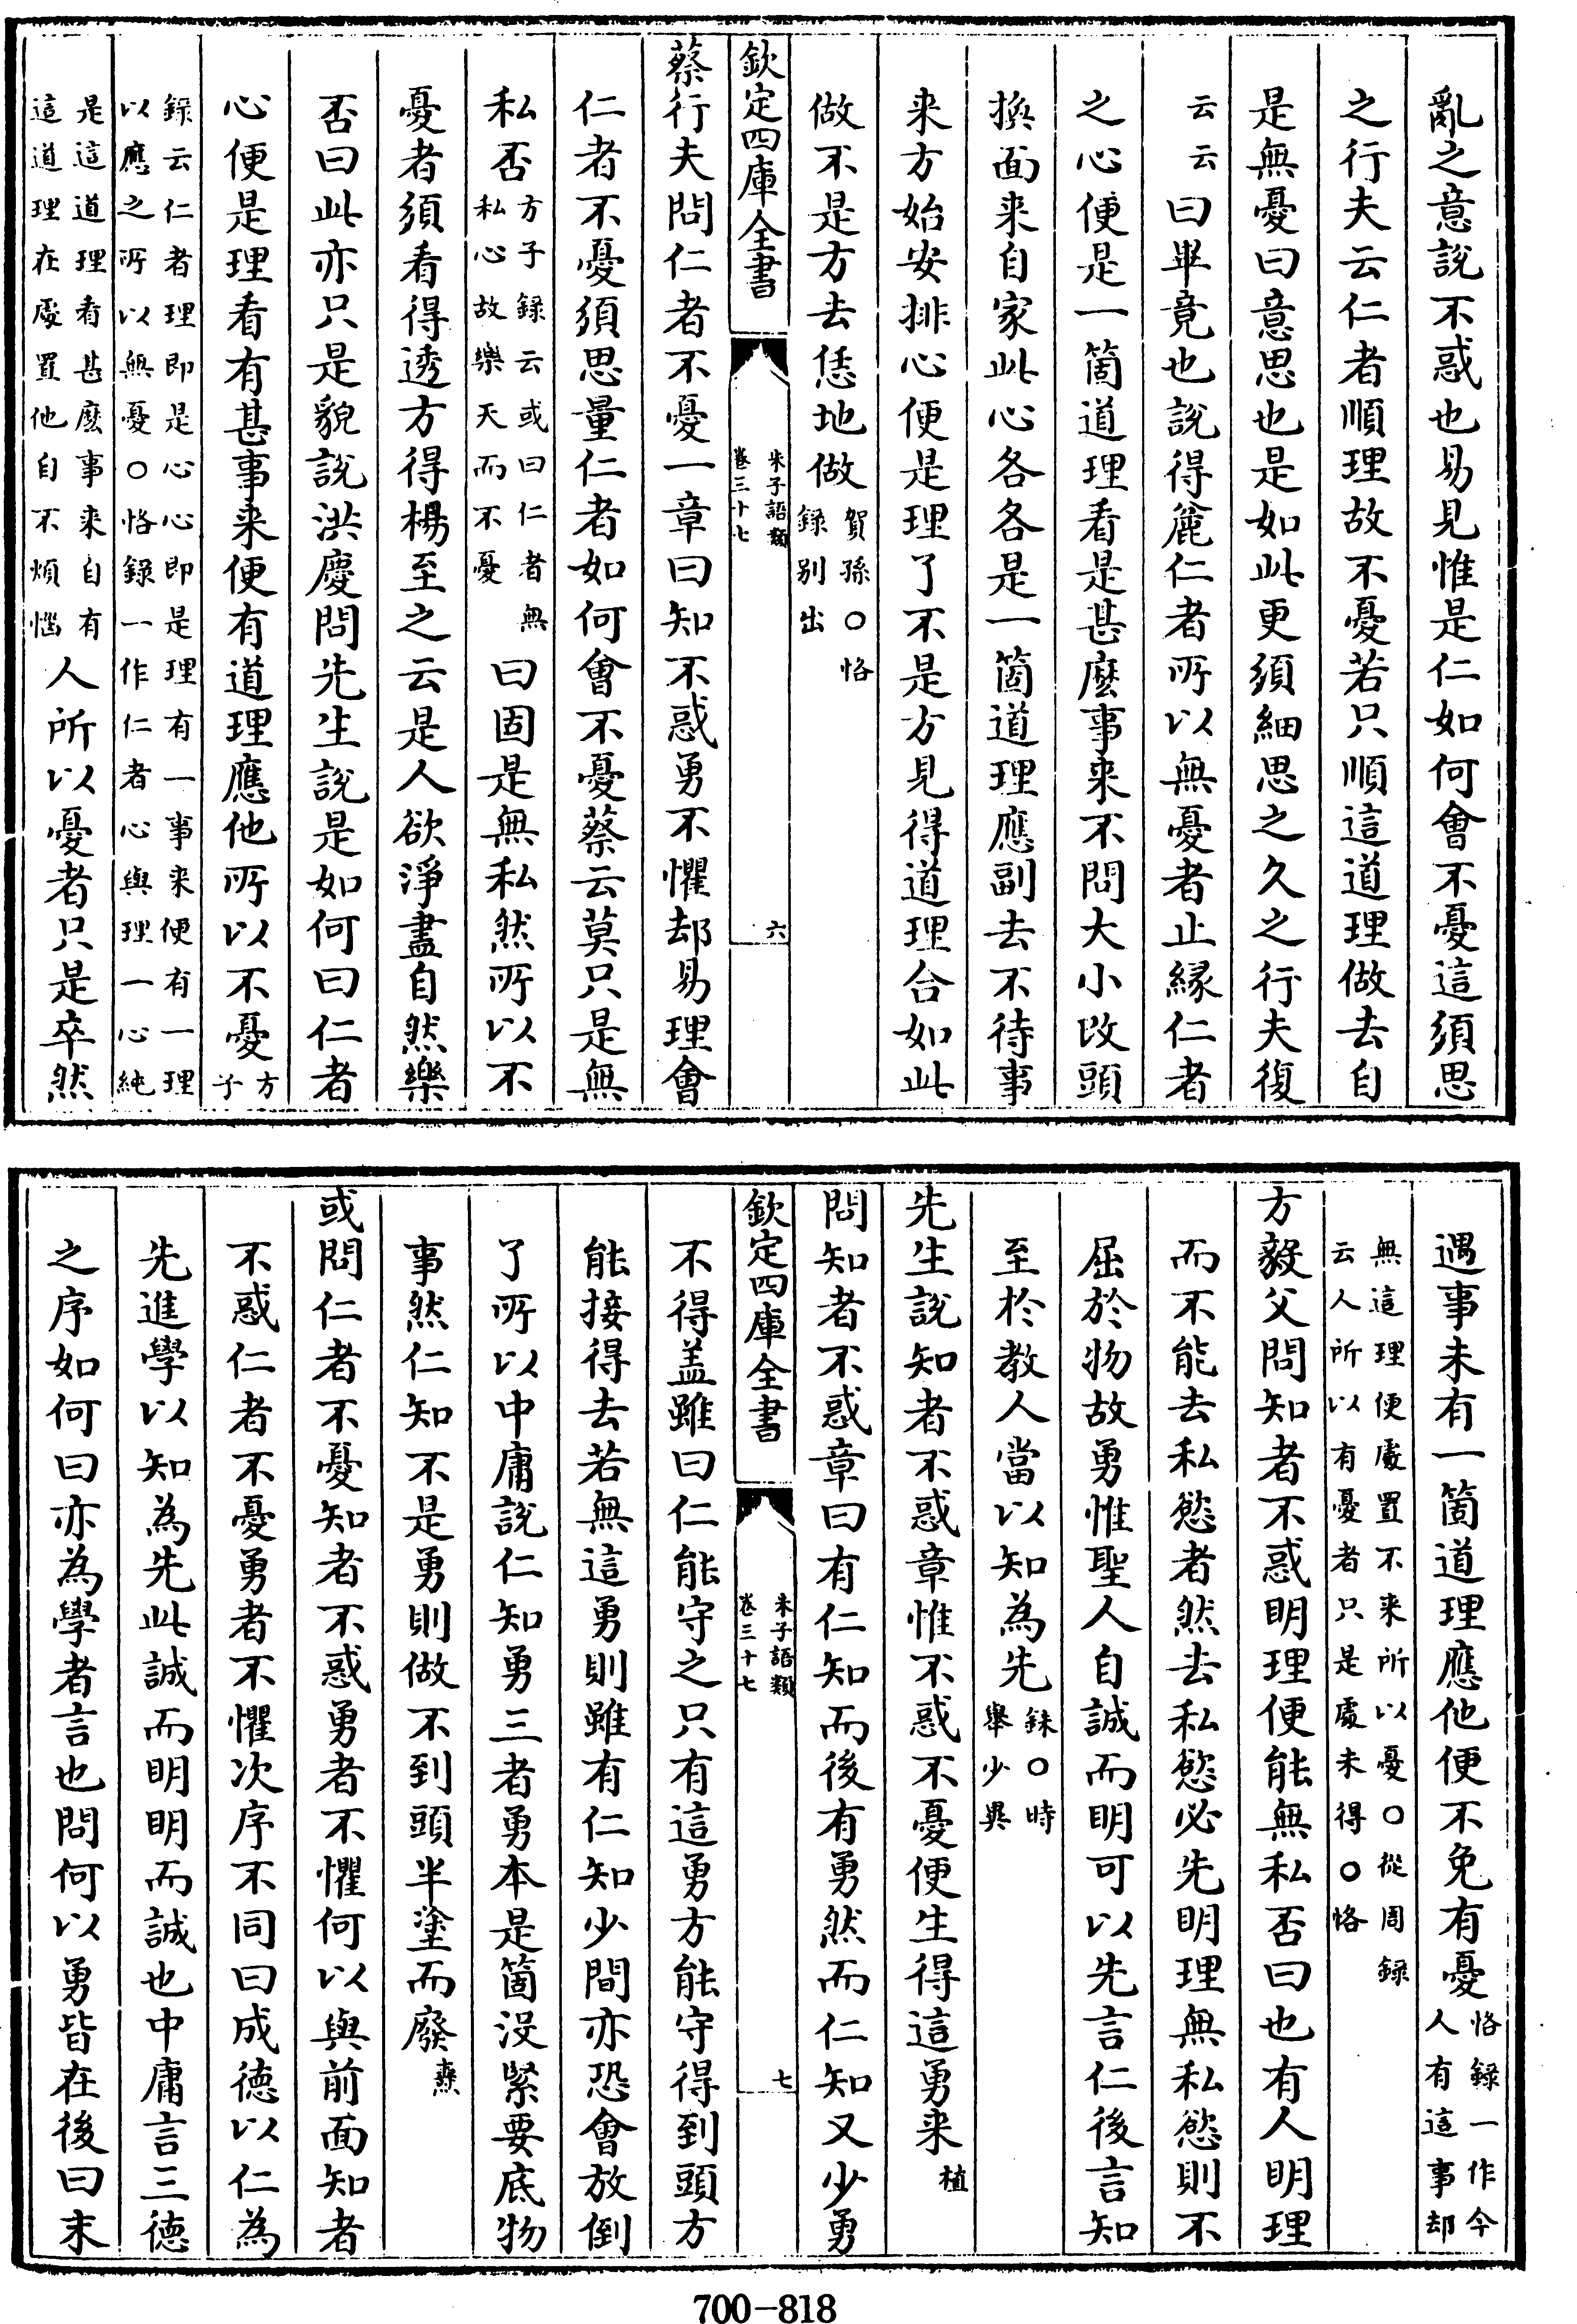 亂之意說不惑也易見惟是仁如何會不憂這須思
之行夫云仁者順理故不憂若只順這道理做去自
是無憂曰意思也是如此更須細思之久之行夫復
云云曰畢竟也說得麄仁者所以無憂者止縁仁者
之心便是一箇道理看是甚麽事来不問大小改頭
換面来自家此心各各是一箇道理應副去不待事
来方始安排心便是理了不是方見得道理合如此
做不是方去恁地做賀孫○恪
録别出
欽定四庫全書
朱子語類
卷三十七
六
蔡行夫問仁者不憂一章曰知不惑勇不懼却易理會
仁者不憂須思量仁者如何會不憂蔡云莫只是無
私否方子録云或曰仁者無
私心故樂天而不憂
曰固是無私然所以不
憂者須看得透方得楊至之云是人欲淨盡自然樂
否曰此亦只是貌說洪慶問先生說是如何曰仁者
心便是理看有甚事来便有道理應他所以不憂方
子
録云仁者理即是心心即是理有一事来便有一理
以應之所以無憂○恪録一作仁者心與理一心純
是這道理看甚麽事来自有
這道理在處置他自不煩惱
人所以憂者只是卒然
遇事未有一箇道理應他便不免有憂恪録一作今
人有這事却
無這理便處置不来所以憂○從周録
云人所以有憂者只是處未得○恪
方毅父問知者不惑明理便能無私否曰也有人明理
而不能去私慾者然去私慾必先明理無私慾則不
屈於物故勇惟聖人自誠而明可以先言仁後言知
至於教人當以知為先銖○時
舉少異
先生說知者不惑章惟不惑不憂便生得這勇来植
問知者不惑章曰有仁知而後有勇然而仁知又少勇
欽定四庫全書
朱子語類
卷三十七
七
不得盖雖曰仁能守之只有這勇方能守得到頭方
能接得去若無這勇則雖有仁知少間亦恐會放倒
了所以中庸說仁知勇三者勇本是箇没緊要底物
事然仁知不是勇則做不到頭半塗而廢燾
或問仁者不憂知者不惑勇者不懼何以與前面知者
不惑仁者不憂勇者不懼次序不同曰成徳以仁為
先進學以知為先此誠而明明而誠也中庸言三徳
之序如何曰亦為學者言也問何以勇皆在後曰末
700-818